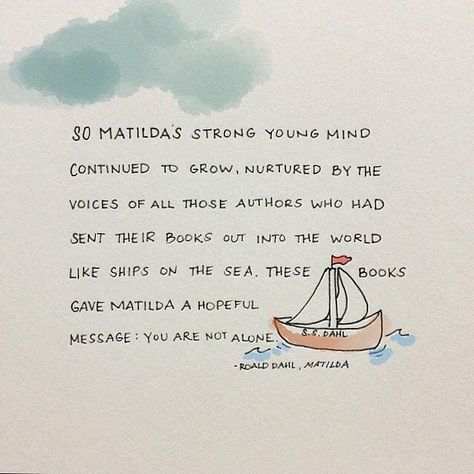 SO MATILDA'S STRONG YOUNG MIND
CONTINUED TO GROW, NURTURED BY THE
VOICES OF ALL THOSE AUTHORS WHO HAD
SENT THEIR BOOKS OUT INTO THE WORLD
LIKE SHIPS ON THE SEA. THESE BOOKS
GAVE MATILDA A HOPEFUL
MESSAGE: YOU ARE NOT ALONE.
S.S. DAHL
- ROALD DAHL, MATILDA